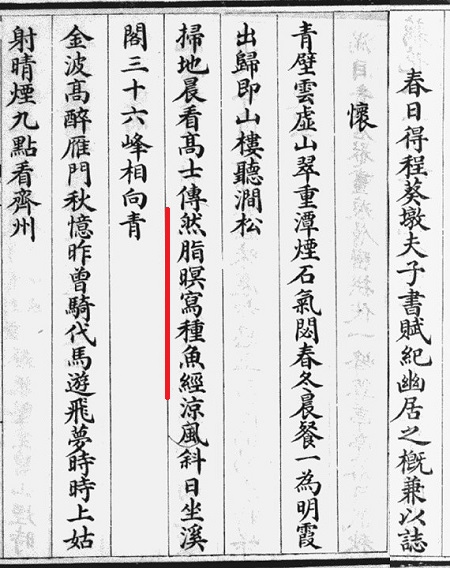 春日得程葵墩夫子書賦紀幽居之概兼以誌
懷
青壁雲虛山翠重潭煙石氣閟春冬晨餐一為明霞
出歸即山樓聽澗松
掃地晨看髙士傳然脂暝寫種魚經涼風斜日坐溪
閣三十六峰相向青
金波髙醉雁門秋憶昨曾騎代馬遊飛夢時時上姑
射晴煙九點看齊州